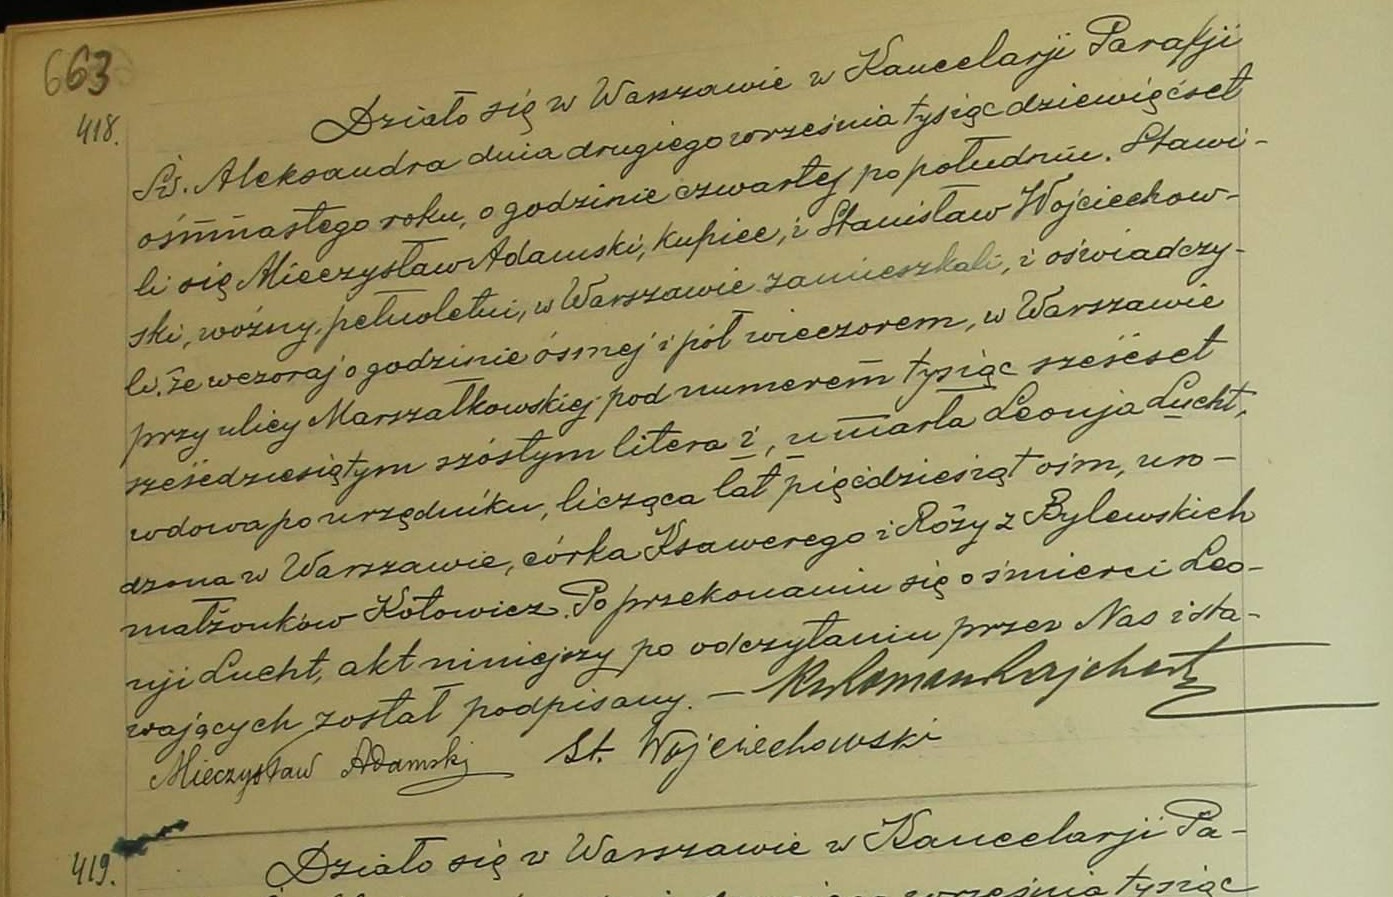 663
418.
Działo się w Warszawie w Kancelarji Parafji
Św. Aleksandra dnia drugiego września tysiąc dziewięćset
ośmnastego roku, o godzinie czwartej po południu. Stawi-
li się Mieczysław Adamski, kupiec, i Stanisław Wojciechow-
ski, woźny, pełnoletni, w Warszawie zamieszkali, i oświadczy-
li, że wczoraj o godzinie ósmej i pół wieczorem, w Warszawie
przy ulicy Marszałkowskiej pod numerem tysiąc sześćset
sześćdziesiątym szóstym litera i, umarła Leonja Lucht,
wdowa po urzędniku, licząca lat pięćdziesiąt ośm, uro-
dzona w Warszawie, córka Ksawerego i Róży z Bylewskich
małżonków Kotowicz. Po przekonaniu się o śmierci Leo-
nji Lucht, akt niniejszy po odczytaniu przez Nas i sta-
wających został podpisany. –
Mieczysław Adamski St. Wojciechowski
419.
Działo się w Warszawie w Kancelarji Pa-
września tysiąc